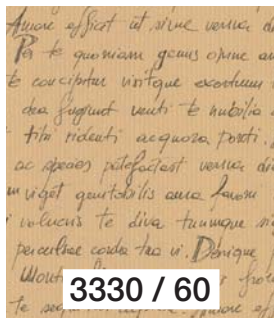 Per te quoniam genus omne an
te concipitur visitque exortum
dea fugiunt venti te nubila
tibi rident aequora ponti.
ac species patefactast verna di
viget genitabilis aura favoni
volucris te diva tuumque
perculsae corda tua vi. Denique
3330 / 60